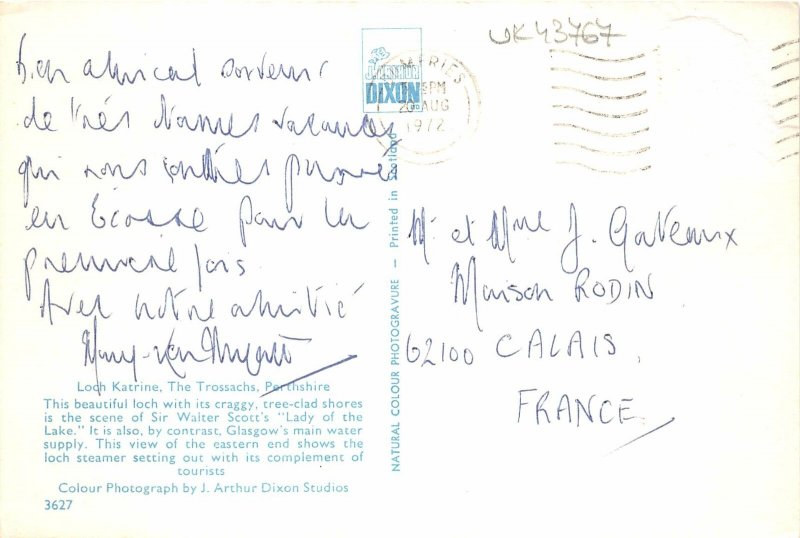 bien amical souvenir
de très bonnes vacances
qui nous
en Ecosse pour la
première fois
Avec notre amitié
Loch Katrine, The Trossachs, Perthshire
This beautiful loch with its craggy, tree-clad shores
is the scene of Sir Walter Scott's "Lady of the
Lake." It is also, by contrast, Glasgow's main water
supply. This view of the eastern end shows the
loch steamer setting out with its complement of
tourists
Colour Photograph by J. Arthur Dixon Studios
3627
NATURAL COLOUR PHOTOGRAVURE — Printed in Scotland
DIXON
MFRIES
PM
20 AUG
1972
UK43767
Mr et Mme J. Gateaux
Maison RODIN
62100 CALAIS,
FRANCE